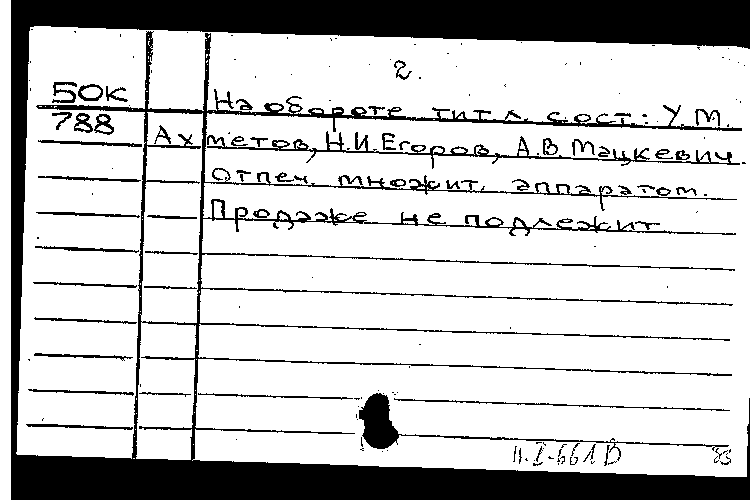 2.
50К На обороте тит.л. сост.: У.М.
788 Ахметов, Н.И.Егоров, А.В.Мацкевич.
Отпеч. множит. аппаратом.
Продаже не подлежит
83